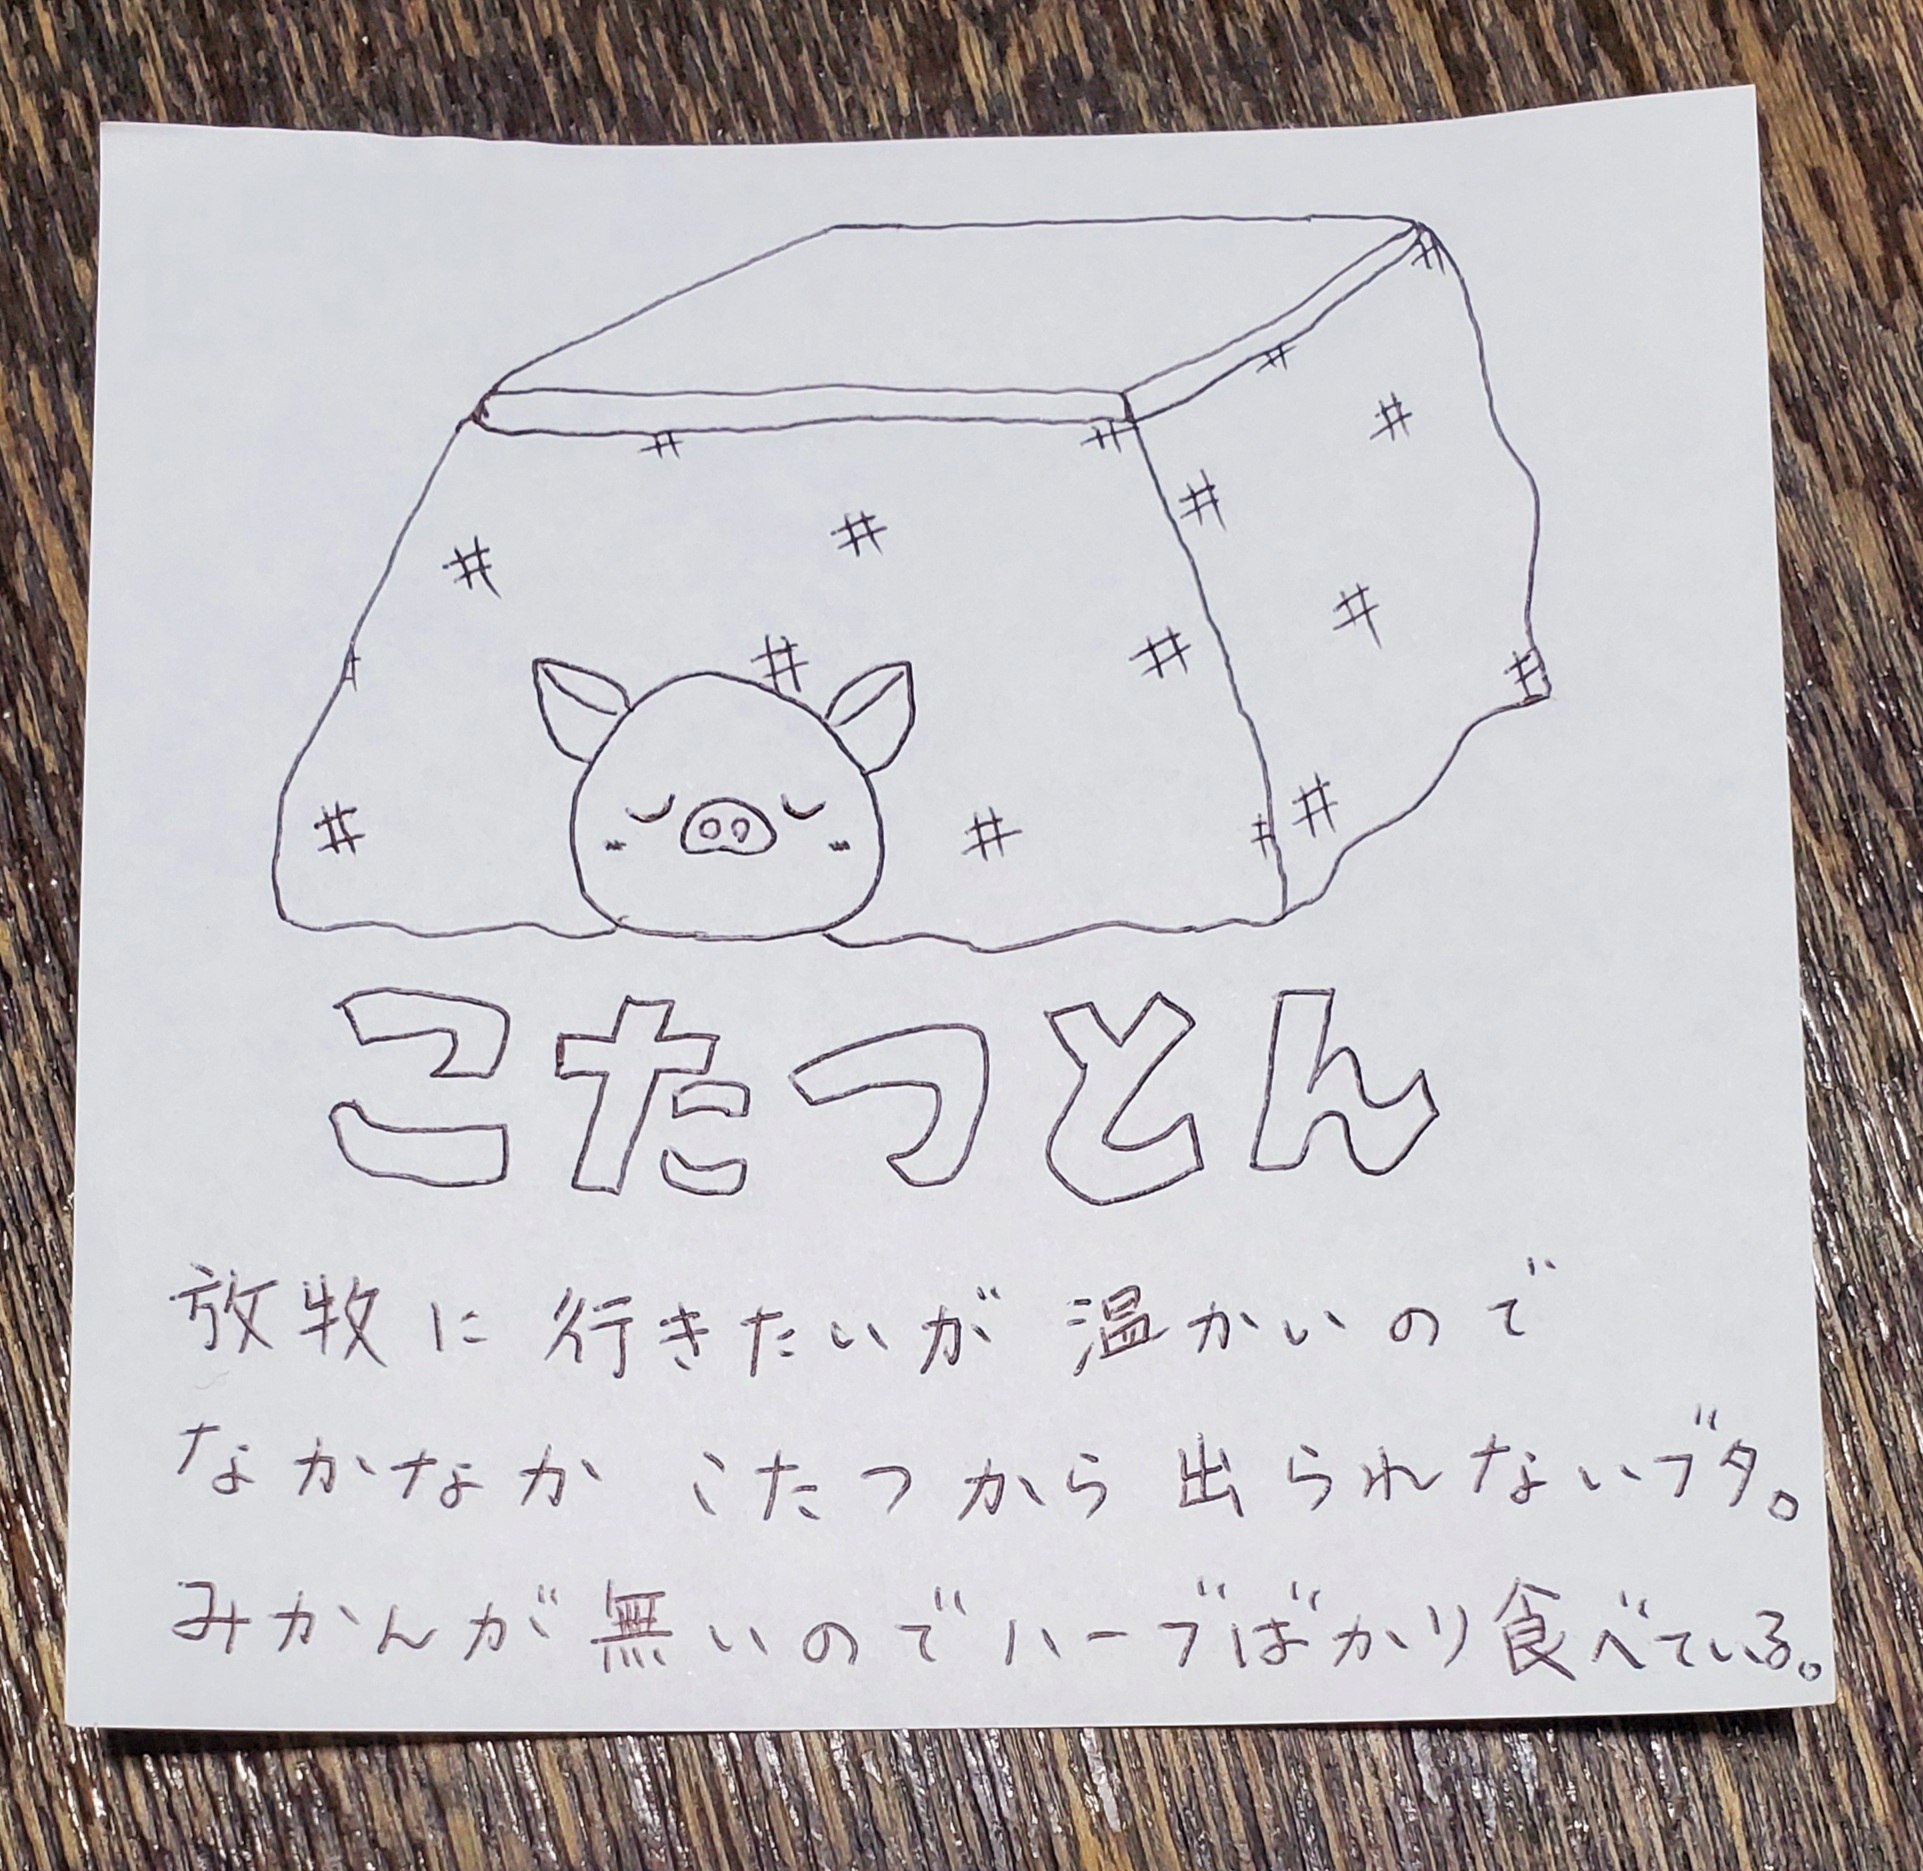 こたつとん
放牧に行きたいが温かいので
なかなかこたつから出られないブタ。
みかんが無いのでハーブばかり食べている。